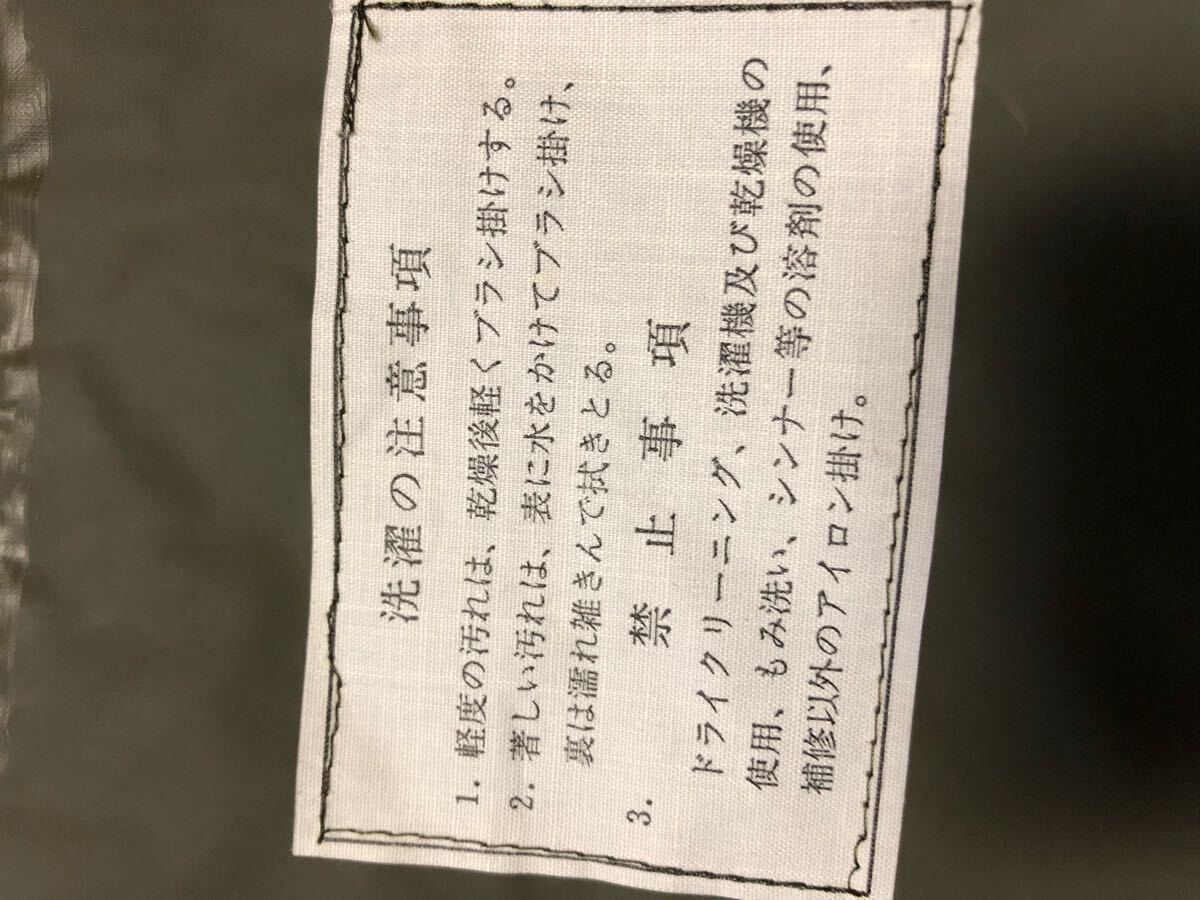 洗濯の注意事項
1. 軽度の汚れは、乾燥後軽くブラシ掛けする。
2. 著しい汚れは、表に水をかけてブラシ掛け、
裏は濡れ雑きんで拭きとる。
3. 禁止事項
ドライクリーニング、洗濯機及び乾燥機の
使用、もみ洗い、シンナー等の溶剤の使用、
補修以外のアイロン掛け。